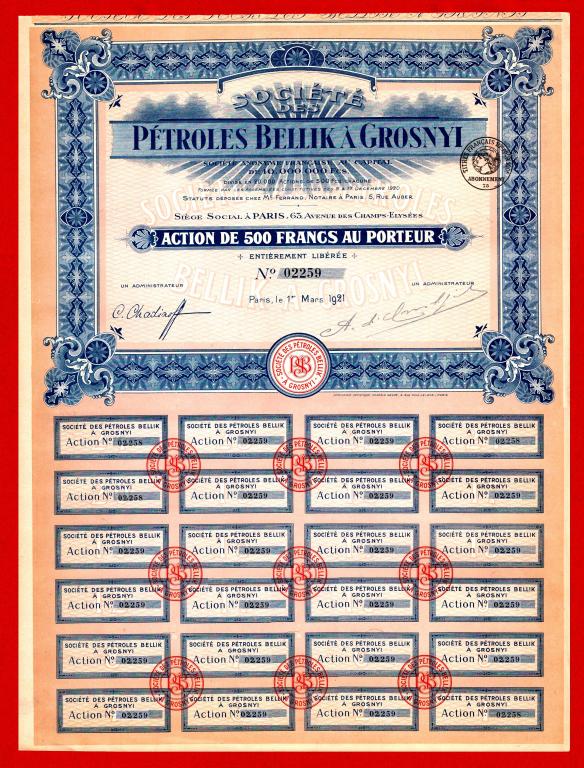 SOCIÉTÉ
DES
PÉTROLES BELLIK À GROSNYI
SOCIÉTÉ ANONYME FRANÇAISE AU CAPITAL
DE 10.000.000 FRS.
DIVISÉ EN 20.000 ACTIONS DE 500 FRS CHACUNE
FORMÉE PAR LES ASSEMBLÉES CONSTITUTIVES DES 9 & 17 DÉCEMBRE 1920
STATUTS DÉPOSÉS CHEZ Me FERRAND, NOTAIRE À PARIS, 5, RUE AUBER
SIÈGE SOCIAL À PARIS, 63, AVENUE DES CHAMPS-ELYSÉES
ACTION DE 500 FRANCS AU PORTEUR
ENTIÈREMENT LIBÉRÉE
No 02259
UN ADMINISTRATEUR
UN ADMINISTRATEUR
Paris, le 1er Mars 1921
C. Chadinoff
ABONNEMENT
SOCIÉTÉ DES PÉTROLES BELLIK
À GROSNYI
SOCIÉTÉ DES PÉTROLES BELLIK
À GROSNYI
SOCIÉTÉ DES PÉTROLES BELLIK
À GROSNYI
SOCIÉTÉ DES PÉTROLES BELLIK
À GROSNYI
SOCIÉTÉ DES PÉTROLES BELLIK
À GROSNYI
Action No 02258
Action No 02259
Action No 02259
Action No 02258
SOCIÉTÉ DES PÉTROLES BELLIK
À GROSNYI
SOCIÉTÉ DES PÉTROLES BELLIK
À GROSNYI
SOCIÉTÉ DES PÉTROLES BELLIK
À GROSNYI
SOCIÉTÉ DES PÉTROLES BELLIK
À GROSNYI
Action No 02258
Action No 02259
Action No 02259
Action No 02259
SOCIÉTÉ DES PÉTROLES BELLIK
À GROSNYI
SOCIÉTÉ DES PÉTROLES BELLIK
À GROSNYI
SOCIÉTÉ DES PÉTROLES BELLIK
À GROSNYI
SOCIÉTÉ DES PÉTROLES BELLIK
À GROSNYI
Action No 02259
Action No 02259
Action No 02259
Action No 02259
SOCIÉTÉ DES PÉTROLES BELLIK
À GROSNYI
SOCIÉTÉ DES PÉTROLES BELLIK
À GROSNYI
SOCIÉTÉ DES PÉTROLES BELLIK
À GROSNYI
SOCIÉTÉ DES PÉTROLES BELLIK
À GROSNYI
Action No 02259
Action No 02259
Action No 02259
Action No 02259
SOCIÉTÉ DES PÉTROLES BELLIK
À GROSNYI
SOCIÉTÉ DES PÉTROLES BELLIK
À GROSNYI
SOCIÉTÉ DES PÉTROLES BELLIK
À GROSNYI
SOCIÉTÉ DES PÉTROLES BELLIK
À GROSNYI
Action No 02259
Action No 02259
Action No 02259
Action No 02259
SOCIÉTÉ DES PÉTROLES BELLIK
À GROSNYI
SOCIÉTÉ DES PÉTROLES BELLIK
À GROSNYI
SOCIÉTÉ DES PÉTROLES BELLIK
À GROSNYI
SOCIÉTÉ DES PÉTROLES BELLIK
À GROSNYI
Action No 02259
Action No 02259
Action No 02259
Action No 02258